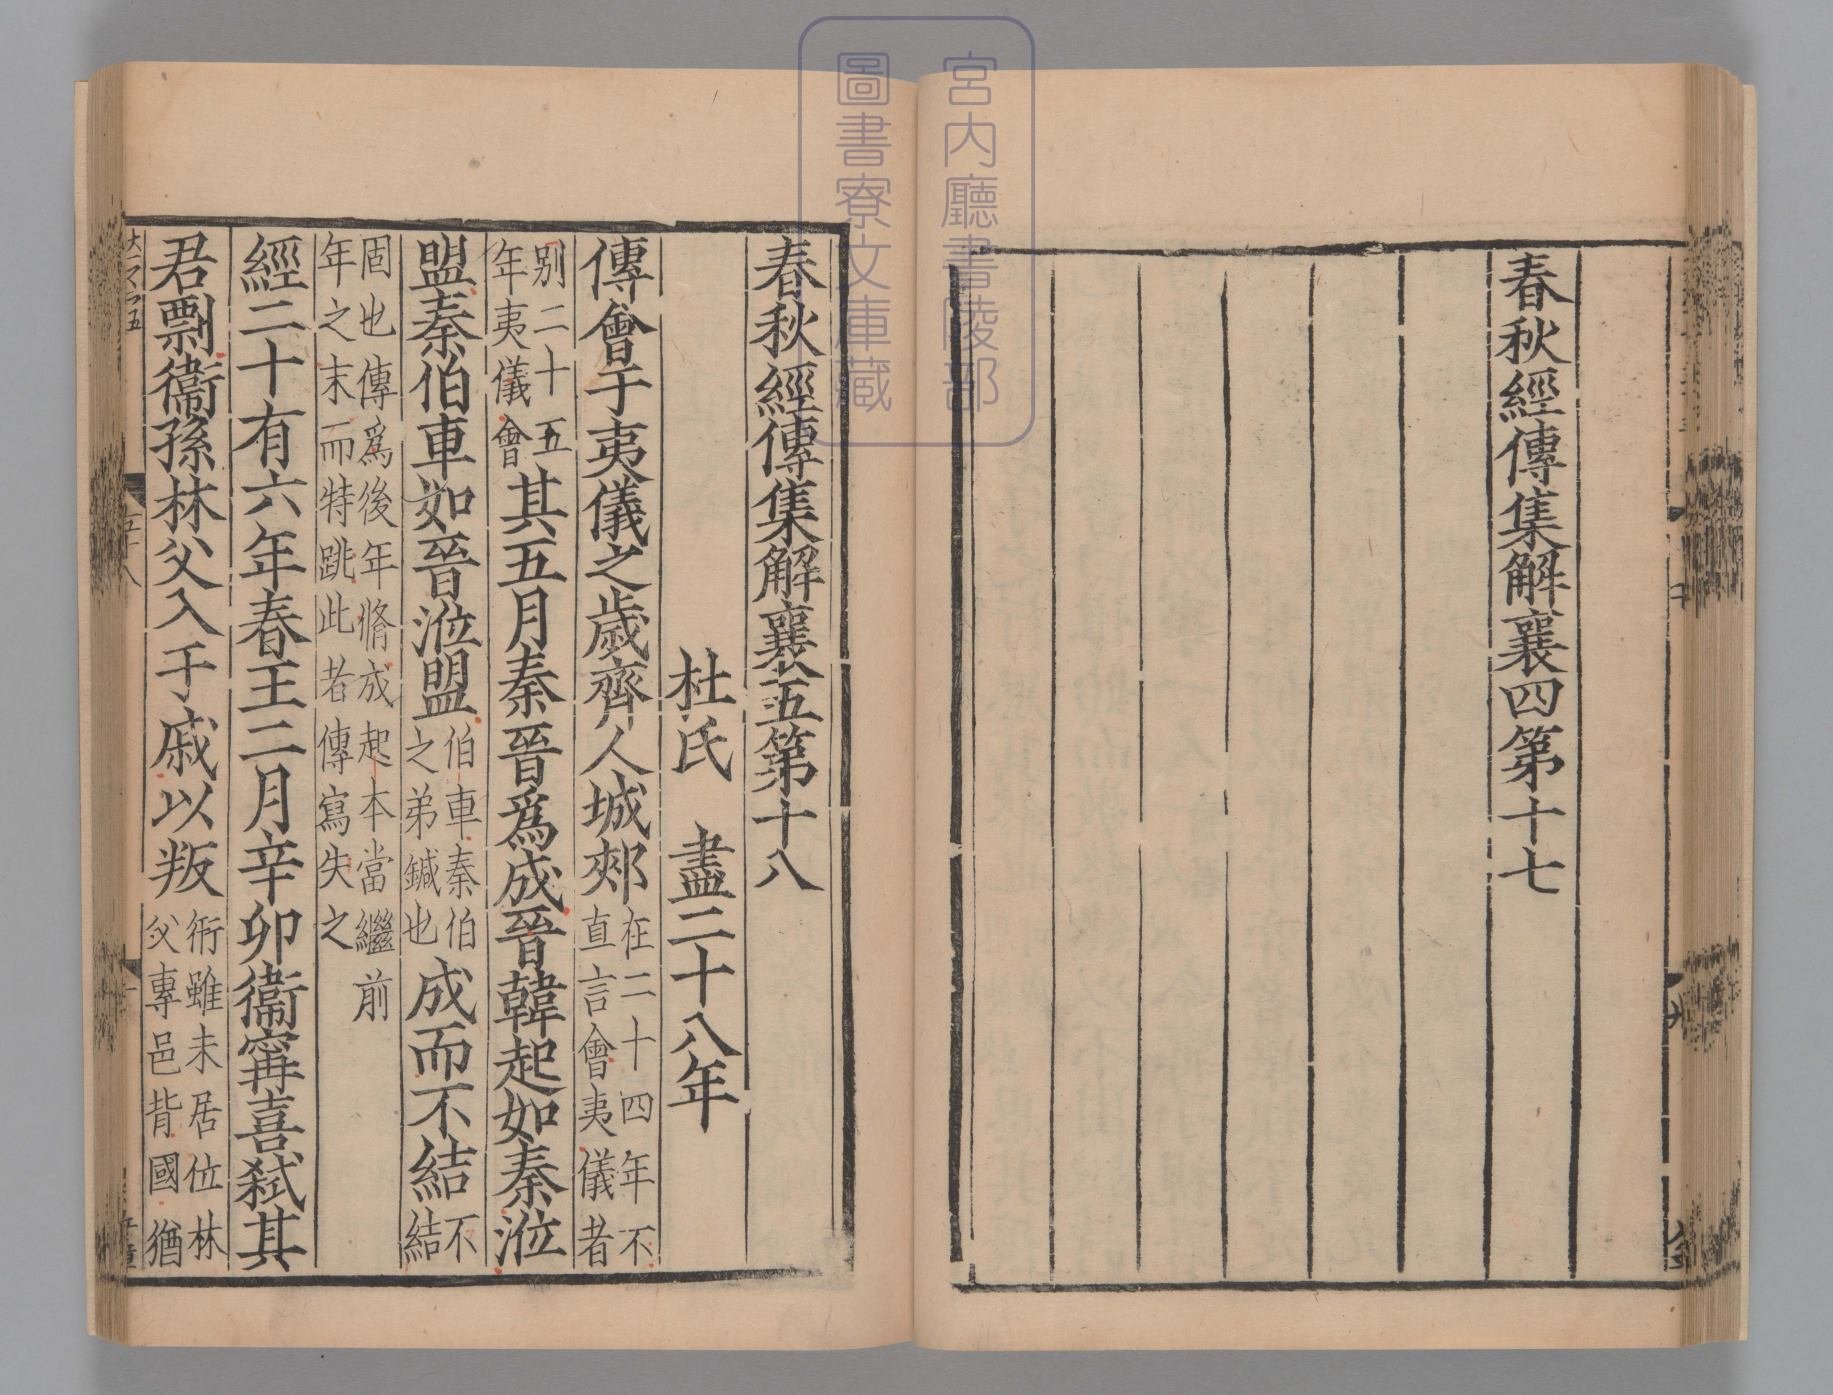 宮内廳書陵部
圖書寮文庫藏
春秋經傳集解襄四第十七
春秋經傳集解襄五第十八
杜氏　盡二十八年
傳會于夷儀之歲齊人城郟在二十四年不直言會夷儀者
別二十五年夷儀會其五月秦晉爲成晉韓起如秦涖
盟秦伯車如晉涖盟伯車秦伯之弟鍼也成而不結不結
固也傳爲後年脩成起本當繼前年之末而特跳此者傳寫失之
經二十有六年春王二月辛卯衞寗喜弑其
君剽衞孫林父入于戚以叛衎雖未居位林父專邑背國猶